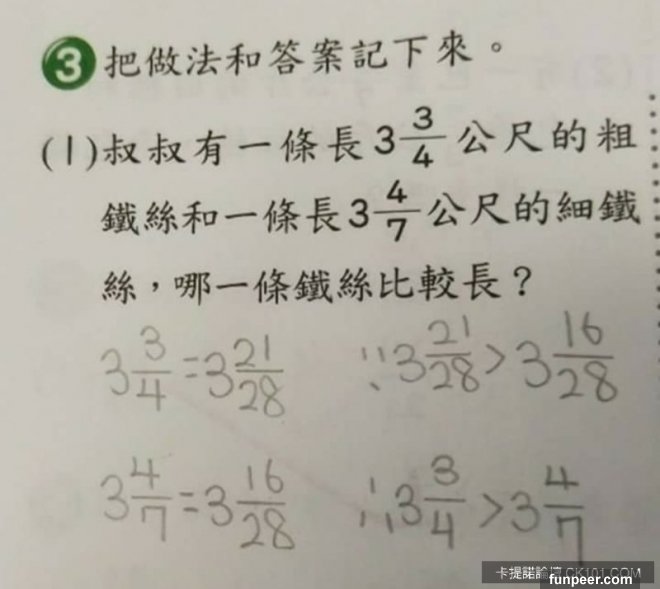 3 把做法和答案記下來。
(1)叔叔有一條長3 3/4 公尺的粗
鐵絲和一條長3 4/7 公尺的細鐵
絲,哪一條鐵絲比較長?
3 3/4 = 3 21/28 ∵3 21/28 > 3 16/28
3 4/7 = 3 16/28 ∴3 3/4 > 3 4/7
卡提諾論壇 CK101.COM
funpeer.com